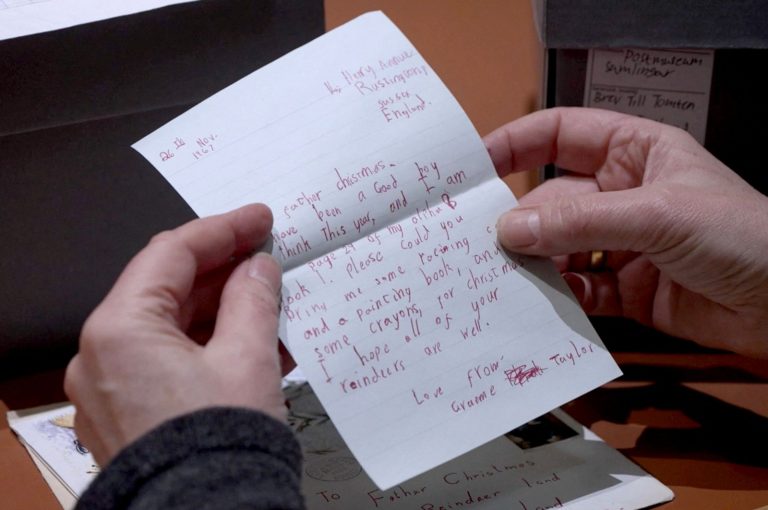 Henry Avenue
Rustington,
Sussex
England.
26th Nov.
1967
father christmas.
Have been a Good boy
think This year, and I am
page 29 of my alpha B
Book. please could you
Bring me some racing c
and a painting book, and
some crayons, for christmas
I hope all of your
reindeers are well.
Love from
Graeme Taylor
To Father Christmas
Reindeer land
Postmuseum
Samlingar
Brev Till Tomten